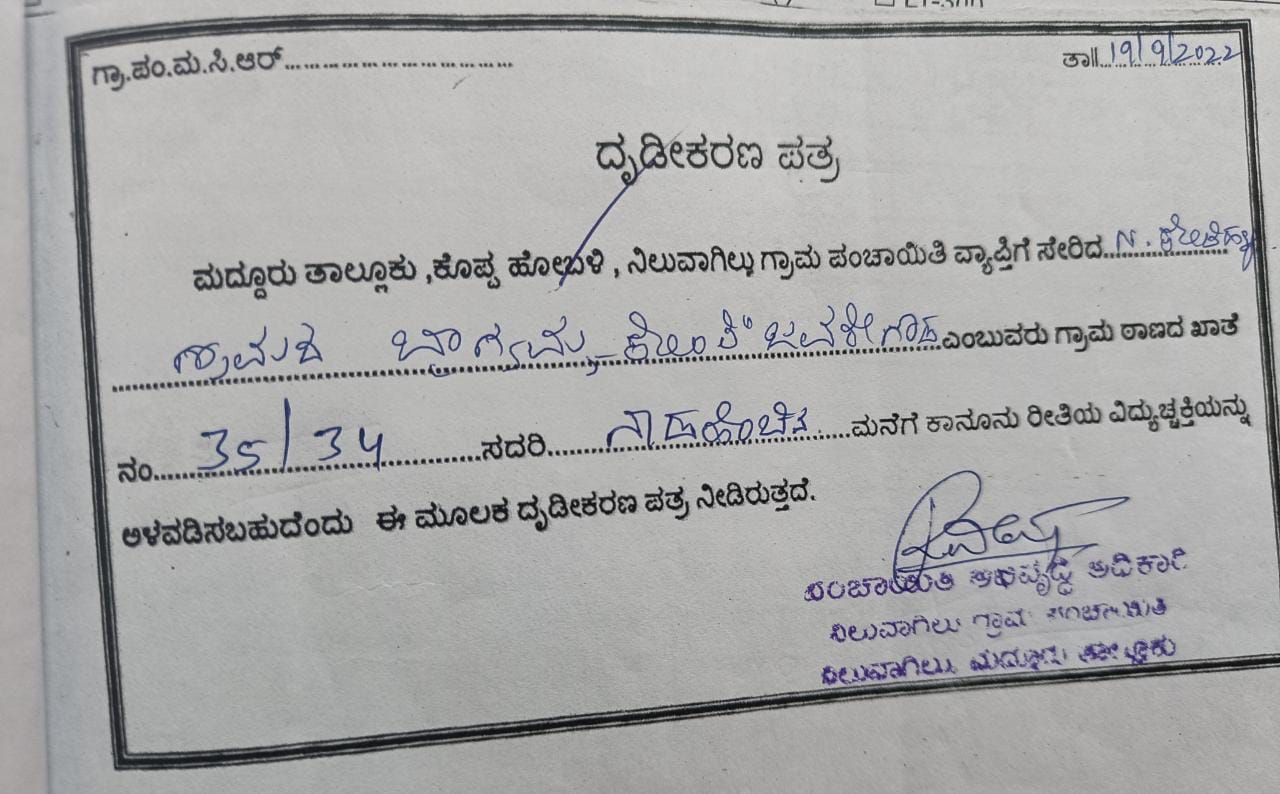 ಗ್ರಾ.ಪಂ.ಮ.ಸಿ.ಆರ್............................ ತಾ||..19/9/2022
ದೃಡೀಕರಣ ಪತ್ರ
ಮದ್ದೂರು ತಾಲ್ಲೂಕು ,ಕೊಪ್ಪ ಹೋಬಳಿ , ನಿಲುವಾಗಿಲು ಗ್ರಾಮ ಪಂಚಾಯಿತಿ ವ್ಯಾಪ್ತಿಗೆ ಸೇರಿದ..N.
ಗ್ರಾಮದ ಭಾಗ್ಯಮ್ಮ ಕೋಂ ಜವರೇಗೌಡ ಎಂಬುವರು ಗ್ರಾಮ ಠಾಣದ ಖಾತೆ
ನಂ.....35/34............ಸದರಿ.......... .....ಮನೆಗೆ ಕಾನೂನು ರೀತಿಯ ವಿದ್ಯುಚ್ಛಕ್ತಿಯನ್ನು
ಅಳವಡಿಸಬಹುದೆಂದು ಈ ಮೂಲಕ ದೃಡೀಕರಣ ಪತ್ರ ನೀಡಿರುತ್ತದೆ.
ಪಂಚಾಯಿತಿ ಅಭಿವೃದ್ಧಿ ಅಧಿಕಾರಿ
ನಿಲುವಾಗಿಲು ಗ್ರಾಮ ಪಂಚಾಯಿತಿ
ನಿಲುವಾಗಿಲು, ಮದ್ದೂರು ತಾಲ್ಲೂಕು